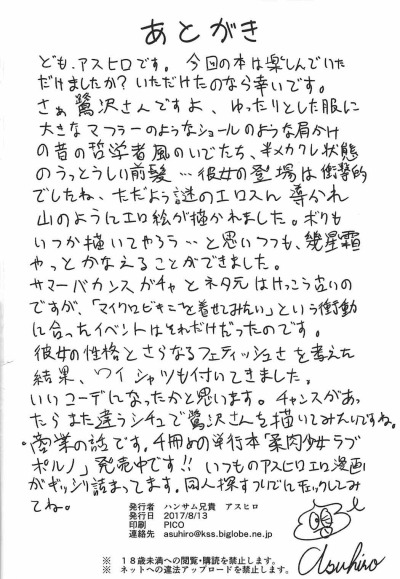 あとがき
ども、アスヒロです。今回の本は楽しんでいた
だけましたか？いただけたのなら幸いです。
さぁ鷺沢さんですよ、ゆったりとした服に
大きなマフラーのようなショールのような肩かけ
の昔の哲学者風のいでたち、半メカクレ状態
のうっとうしい前髪…彼女の登場は衝撃的
でしたね、ただよう謎のエロスに導かれ
山のようにエロ絵が描かれました。ボクも
いつか描いてやろう…と思いつつも、幾星霜
やっとかなえることができました。
サマーバカンスガチャとネタ元はけっこう古いの
ですが、「マイクロビキニを着せてみたい」という衝動
に合ったイベントはそれだけだったのです。
彼女の性格とさらなるフェティッシュさを考えた
結果、ワイシャツも付いてきました。
いいコーデになったかと思います。チャンスがあっ
たらまた違うシチュで鷺沢さんを描いてみたいですね。
・商業の話です。4冊めの単行本「柔肉少女ラブ
ポルノ」発売中です!!いつものアスヒロエロ漫画
がギッシリ詰まってます。同人探すついでにチェックしてみ
てね。
発行者 ハンサム兄貴 アスヒロ
発行日 2017/8/13
印刷 PICO
連絡先 asuhiro@kss.biglobe.ne.jp
Asuhiro
※ 18歳未満への閲覧・購読を禁止します。
※ ネットへの違法アップロードを禁止します。